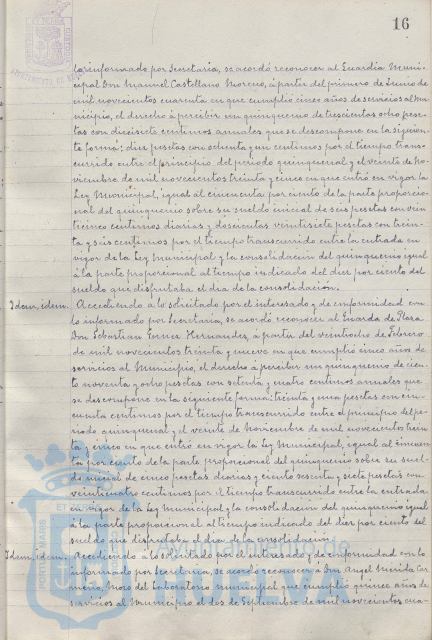 16
lo informado por Secretaría, se acordó reconocer al Guardia Muni-
cipal Don Manuel Castellano Moreno, a partir del primero de Junio de
mil novecientos cuarenta en que cumplio cinco años de servicios al Mu-
nicipio, el derecho a percibir un quinquenio de trescientas ocho pese-
tas con diecisiete centimos anuales que se descompone en la siguien-
te forma: diez pesetas con ochenta y un centimos por el tiempo trans-
currido entre el principio del periodo quinquenal y el veinte de No-
viembre de mil novecientos treinta y cinco en que entró en vigor la
Ley Municipal, igual al cincuenta por ciento de la parte proporcio-
nal del quinquenio sobre su sueldo inicial de seis pesetas con vein-
ticinco centimos diarias y doscientas ventisiete pesetas con trein-
ta y seis centimos por el tiempo transcurrido entre la entrada en
vigor de la Ley Municipal y la consolidación del quinquenio igual
á la parte proporcional al tiempo indicado del diez por ciento del
sueldo que disfrutaba el dia de la consolidación.
Idem, idem. Accediendo á lo solicitado por el interesado y de conformidad con
lo informado por Secretaria, se acordó reconocer al Guarda de Plaza
Don Sebastian Hernandez, a partir del veintiocho de Febrero
de mil novecientos treinta y nueve en que cumplió cinco años de
servicios al Municipio, el derecho a percibir un quinquenio de cien-
to noventa y ocho pesetas con setenta y cuatro centimos anuales que
se descompone en la siguiente forma: treinta y una pesetas con cin-
cuenta centimos por el tiempo transcurrido entre el principio del pe-
riodo quinquenal y el veinte de Noviembre de mil novecientos trein-
ta y cinco en que entró en vigor la Ley Municipal, igual al cincuen-
ta por ciento de la parte proporcional del quinquenio sobre su suel-
do inicial de cinco pesetas diarias y ciento sesenta y siete pesetas con
veinticuatro centimos por el tiempo transcurrido entre la entrada
en vigor de la Ley Municipal y la consolidación del quinquenio igual
á la parte proporcional al tiempo indicado del diez por ciento del
sueldo que disfrutaba el dia de la consolidación.
Idem, idem. Accediendo á lo solicitado por el interesado y de conformidad con lo
informado por Secretaria, se acordó reconocer á Don Angel Mérida Car-
mona, Mozo del Laboratorio municipal que cumplió quince años de
servicios al Municipio el dos de Septiembre de mil novecientos cua-
HUELVA